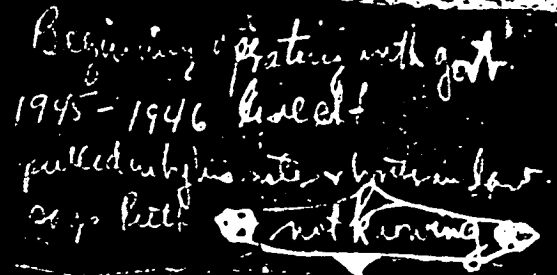 Beginning operating with govt.
1945-1946 himself
pulled in by his sister & brother in law.
says Ruth not knowing